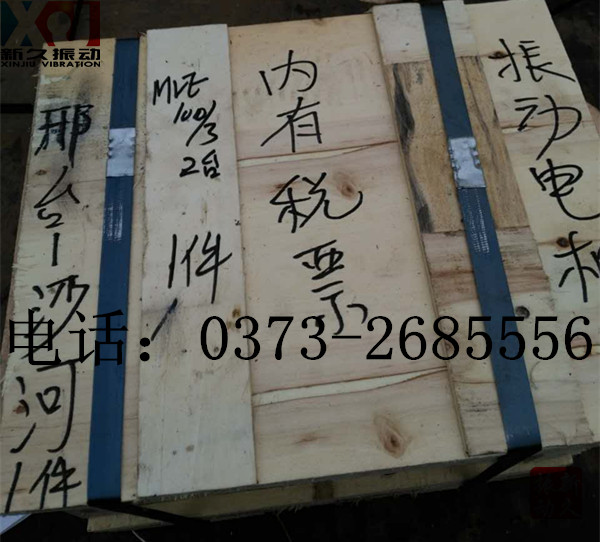 新久振动
XINJIU VIBRATION
邢台沙河
1件
MVE
100/3
2台
1件
内有税票
振动电机
电话：0373-2685556